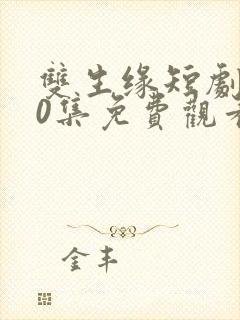 雙生緣短劇
0集免費觀看
金丰